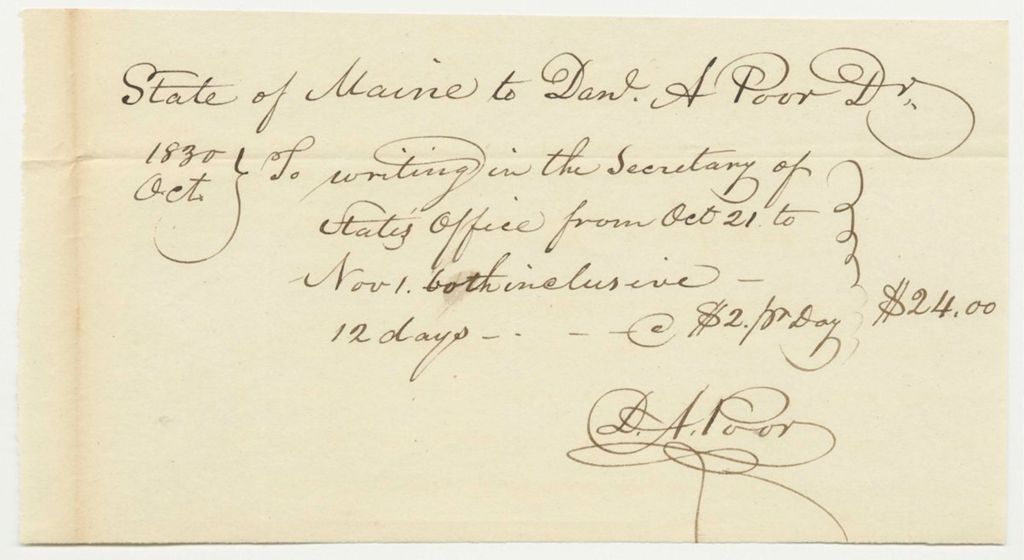 State of Maine to Danl. A Poor Dr.
1830 Oct. } To writing in the Secretary of
State's Office from Oct 21. to
Nov 1. both inclusive —
12 days - . - — @ $2. pr Day } $24.00
D. A. Poor